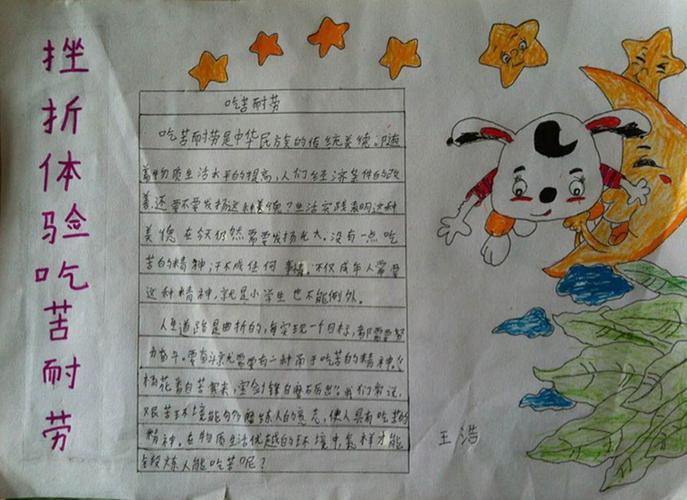 挫折体验吃苦耐劳
吃苦耐劳
吃苦耐劳是中华民族的传统美德。随
着物质生活水平的提高,人们经济条件的改
善,还要不要发扬这种美德?生活实践表明这种
美德在今天仍然需要发扬光大。没有一点吃
苦的精神,干不成任何事情。不仅成年人需要
这种精神,就是小学生也不能例外。
人生道路是曲折的,每实现一个目标,都需要努
力奋斗。要奋斗就需要有一种勇于吃苦的精神。
梅花香自苦寒来,宝剑锋自磨石出。我们常说,
艰苦环境能够磨炼人的意志,使人具有吃苦的
精神。在物质生活优越的环境中,怎样才能
锻炼人能吃苦呢?
王浩